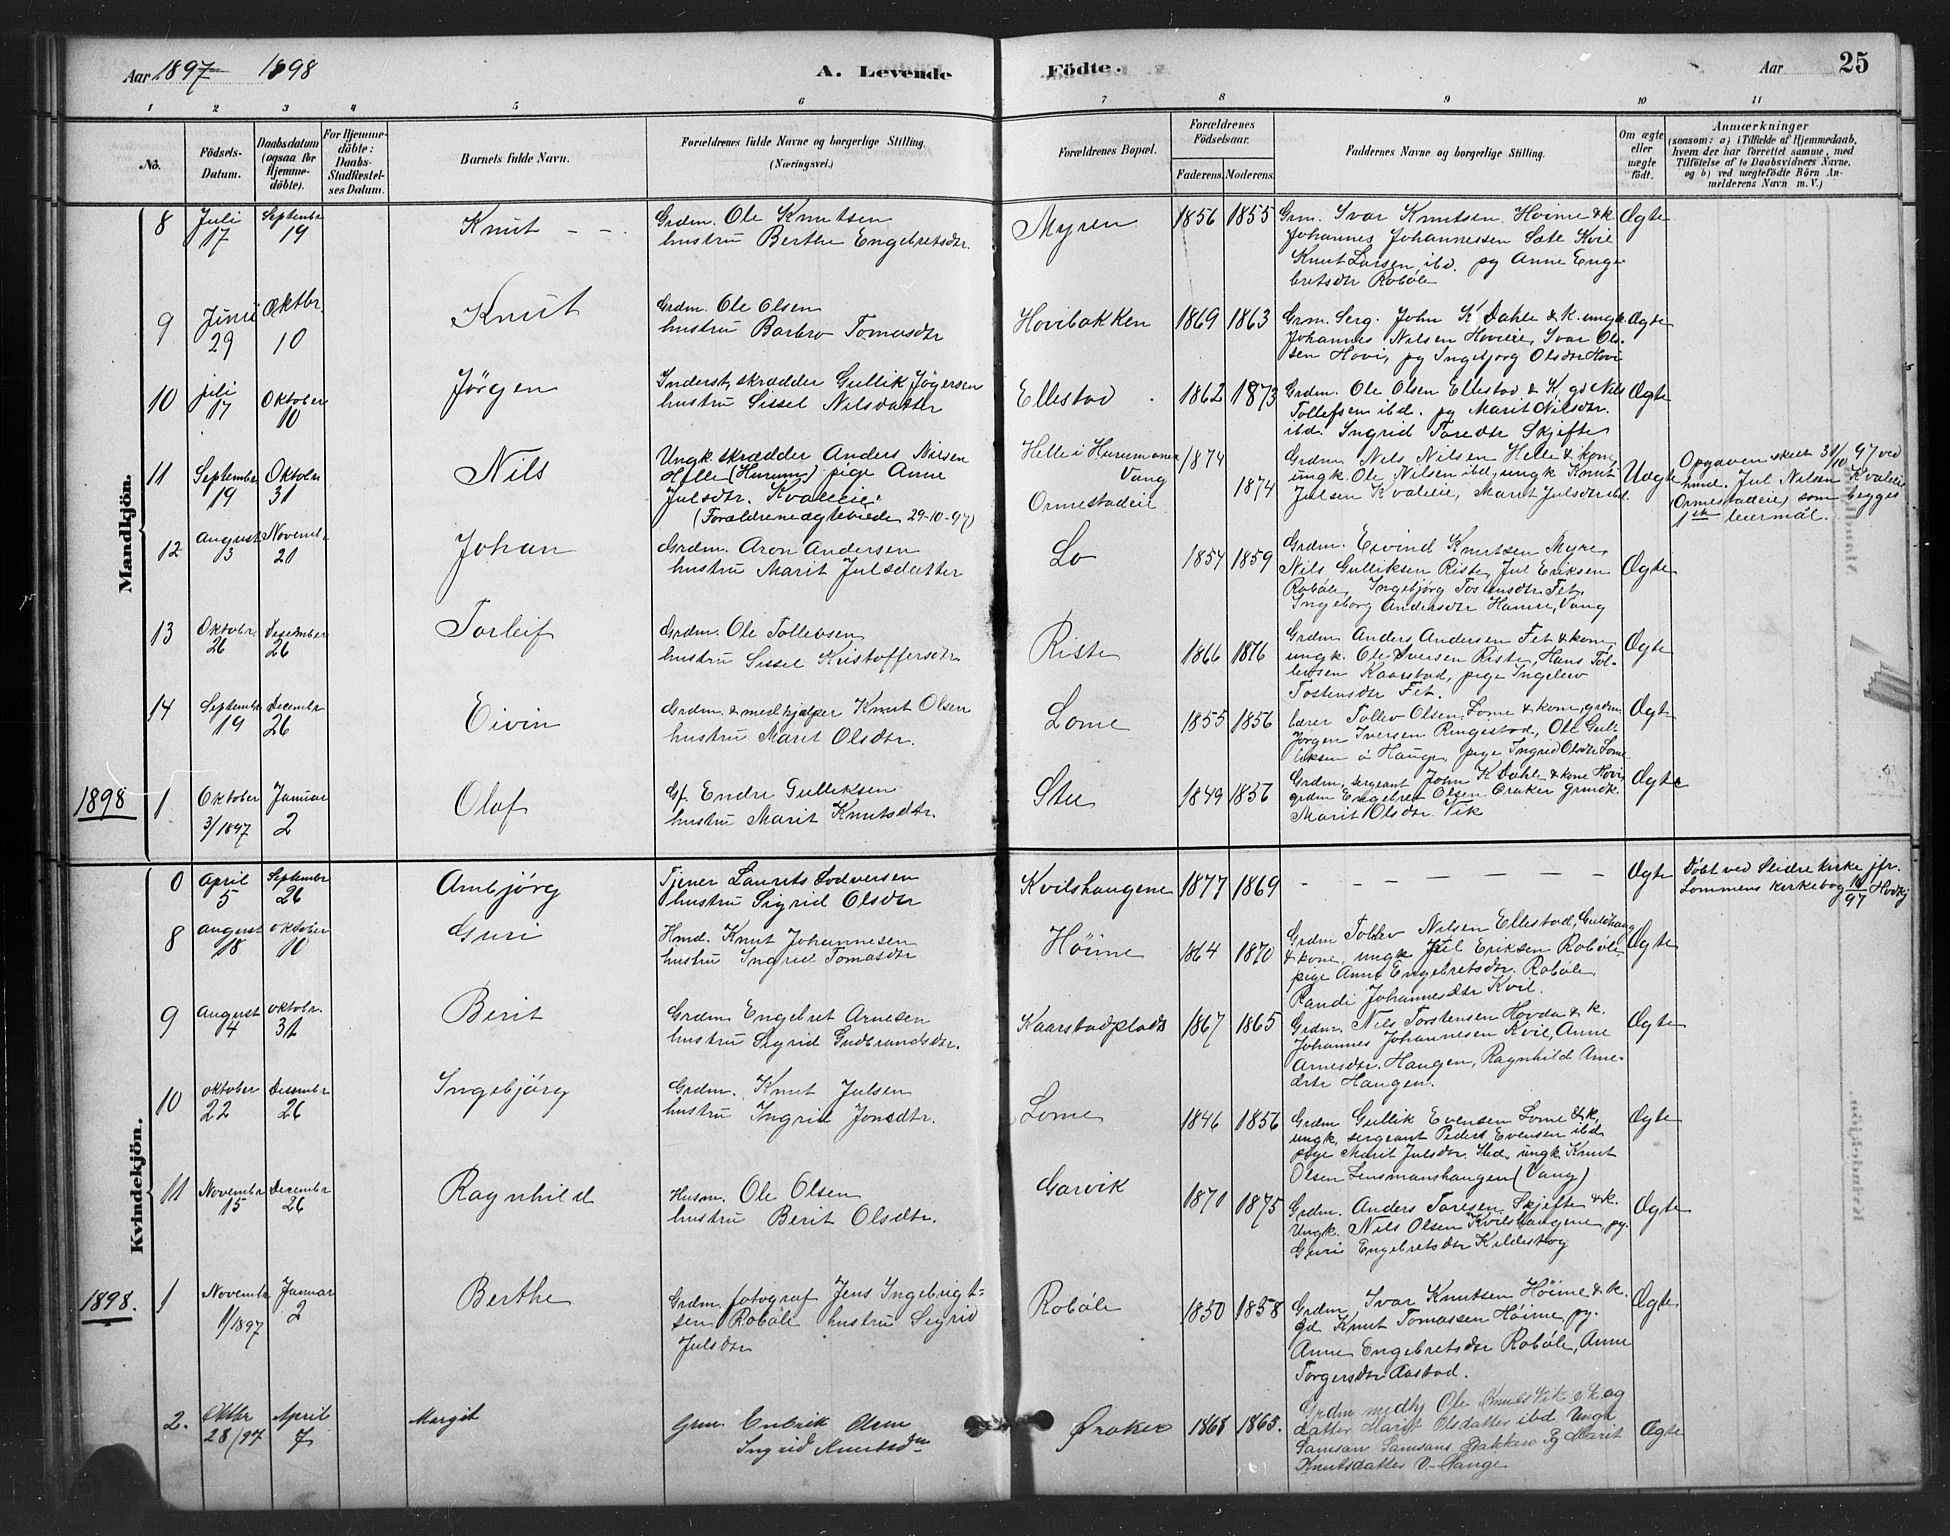 Aar 1897 1898 A. Levende Födte. Aar 25
1 2 3 4 5 6 7 8 9 10 11
No. Födsels-Datum. Daabsdatum (ogsaa for Hjemmedöbte). For Hjemmedöbte: Daabs-Stadfæstelses Datum. Barnets fulde Navn. Forældrenes fulde Navne og borgerlige Stilling. (Næringsvei.) Forældrenes Bopæl. Forældrenes Födselsaar. Faderens. Moderens. Faddernes Navne og borgerlige Stilling. Om ægte eller uægte födt. Anmærkninger (saasom: a) i Tilfælde af Hjemmedaab, hvem der har forrettet samme, med Tilföielse af to Daabsvidners Navne, og b) ved uægtefödte Börn Anmelderens Navn m. V.)
Mandkjön.
8 Juli 17 Septembr 19 Knut Grdm. Ole Knutsen
hustru Berthe Engebretsdtr. Myren 1856 1855 Grm. Ivar Knutsen Höime & k.
Johannes Johannessen Sæte Kvil
Knut Larsen ibd. pg Anne Enge-
bretsdtr Roböle Ægte
9 Juni 29 Oktbr. 10 Knut Grdm. Ole Olsen
hustru Barbro Tomasdtr Hovibakken 1869 1863 Grm. Serg. John K Dahle & K. ungk.
Johannes Nilsen Hovieie, Ivar Ol-
sen Hovi, pg Ingebjorg Olsdtr Hovi Ægte
10 juli 17 Oktober 10 Jörgen Inderst, skrædder Gullik Jögersen
hustru Sissel Nilsdatter Ellestad 1862 1873 Grdm. Ole Olsen Ellestad & K, gd Nils
Tollefsen ibd. pg Marit Nilsdtr.
ibd. Ingrid Toredtr Skjefte Ægte
11 September 19 Oktobr 31 Nils Ungk. skrædder Anders Nilsen
Helle (Hurum) pige Anne
Julsdtr. Kvaleie.
(Forældrene ægteviede 29-10-97) Helle i Hurum annex
Vang
Ormestadeie 1874 1874 Grdm. Nils Nilsen Helle & kone
ungk. Ole Nilsen ibd, ungk Knut
Julsen Kvaleie, Marit Julsdtr ibd. Uægte Opgaven skeet 31/10 97 ved
husm. Jul Nilsen Kvaleie
Ormestadeie, som begges
1ste leiermål.
12 august 3 Novembr 21 Johan Grdm. Aron Andersen
hustru Marit Julsdatter Lo 1854 1859 Grdm. Eivind Knutsen Myre,
Nils Gulliksen Riste, Jul Eriksen
Roböle, Ingebjörg Tostensdtr Fet,
Ingeborg Andersdtr Hamre, Vang Ægte
13 Oktobr. 26 Desember 26 Torleif Grdm. Ole Tollevsen
hustru Sissel Kristoffersdtr. Riste 1866 1876 Grdm Anders Andersen Fet & kone,
ungk. Ole Iversen Riste, Hans Tol-
levsen Kaarstad, pige Ingelev
Tostensdtr Fet. Ægte
14 Septembr 19 Decembr 26 Eivin Grdm. & medhjælper Knut Olsen
hustru Marit Olsdtr. Lome 1855 1856 lærer Tollev Olsen Lome & kone, grdm.
Jörgen Iversen Ringestad, Ole Gul-
liksen ö Hauge, pige Ingrid Olsdtr Lome Ægte
1898 1 Oktober 3/1897 Januar 2 Olaf Gf. Endre Gulliksen
hustru Marit Knutsdtr. Stee 1849 1857 Grdm, sergeant John K Dahle & kone Hovi,
grdm Engebret Olsen Öraker
Marit Olsdtr. Vik Ægte
Kvindekjön.
0 April 5 Septembr 26 Arnbjörg Tjener Laurits Lodversen
hustru Sigrid Olsdtr Kvilshaugene 1877 1869 – – – – – – – Ægte Döbt ved Slidre kirke jfr.
Lommens kirkebog 97
8 august 18 oktober 10 Guri Hmd. Knut Johannesen
hustru Ingrid Tomasdtr Höime 1864 1870 Grdm Tollev Nilsen Ellestad,
& kone, ungk Jul Eriksen Roböle,
pige Anne Engebretsdtr. Roböle,
Randi Johannesdtr Kvil. Ægte
9 august 4 oktobr. 31 Berit Grdm Engebret Arnesen
hustru Sigrid Gudbrandsdtr. Kaarstadplads 1867 1865 Grdm. Nils Torstensen Hovda & k.
Johannes Johannesen Kvil, Anne
Arnesdtr. Haugen, Ragnhild Arne-
dtr Haugen. Ægte
10 oktober 22 Desembr 26 Ingebjörg Grdm. Knut Julsen
hustru Ingrid Jonsdtr. Lome 1846 1856 Grdm Gullik Evensen Lome & k,
ungk, sergeant Peder Evensen ibd,
pige Marit Julsdtr. ungk Knut
Olsen Lensmanshaugen (Vang) Ægte
11 Novembr 15 Decembr 26 Ragnhild Husm. Ole Olsen
hustru Berit Olsdtr. Garvik 1870 1875 Grdm. Anders Toresen Skjefte & k.
Ungk. Nils Olsen Kvilshaugene, pg.
Guri Engebretsdtr Kildeskog Ægte
1898. 1 Novembr 1/1897 Januar 2 Berthe Grdm. fotograf Jens Ingebrigt-
sen Roböle hustru Sigrid
Julsdtr Roböle 1850 1858 Grdm, Ivar Knutsen Höime & k.
gd Knut Tomassen Höime, pg.
Anne Engebretsdtr Roböle, Anne
Torgersdtr Aastad. Ægte
2. Oktbr 28/97 April 7 Margit Grm. Endrik Olsen
Ingrid Knutsdtr Öraker 1868 1865. Grdm medhj Ole Knuts Vik o k og
datter Marit Olsdatter ibd Ungk
Samson Samsons Bakken Pg Marit
Knutsdatter V- Hauge Ægte